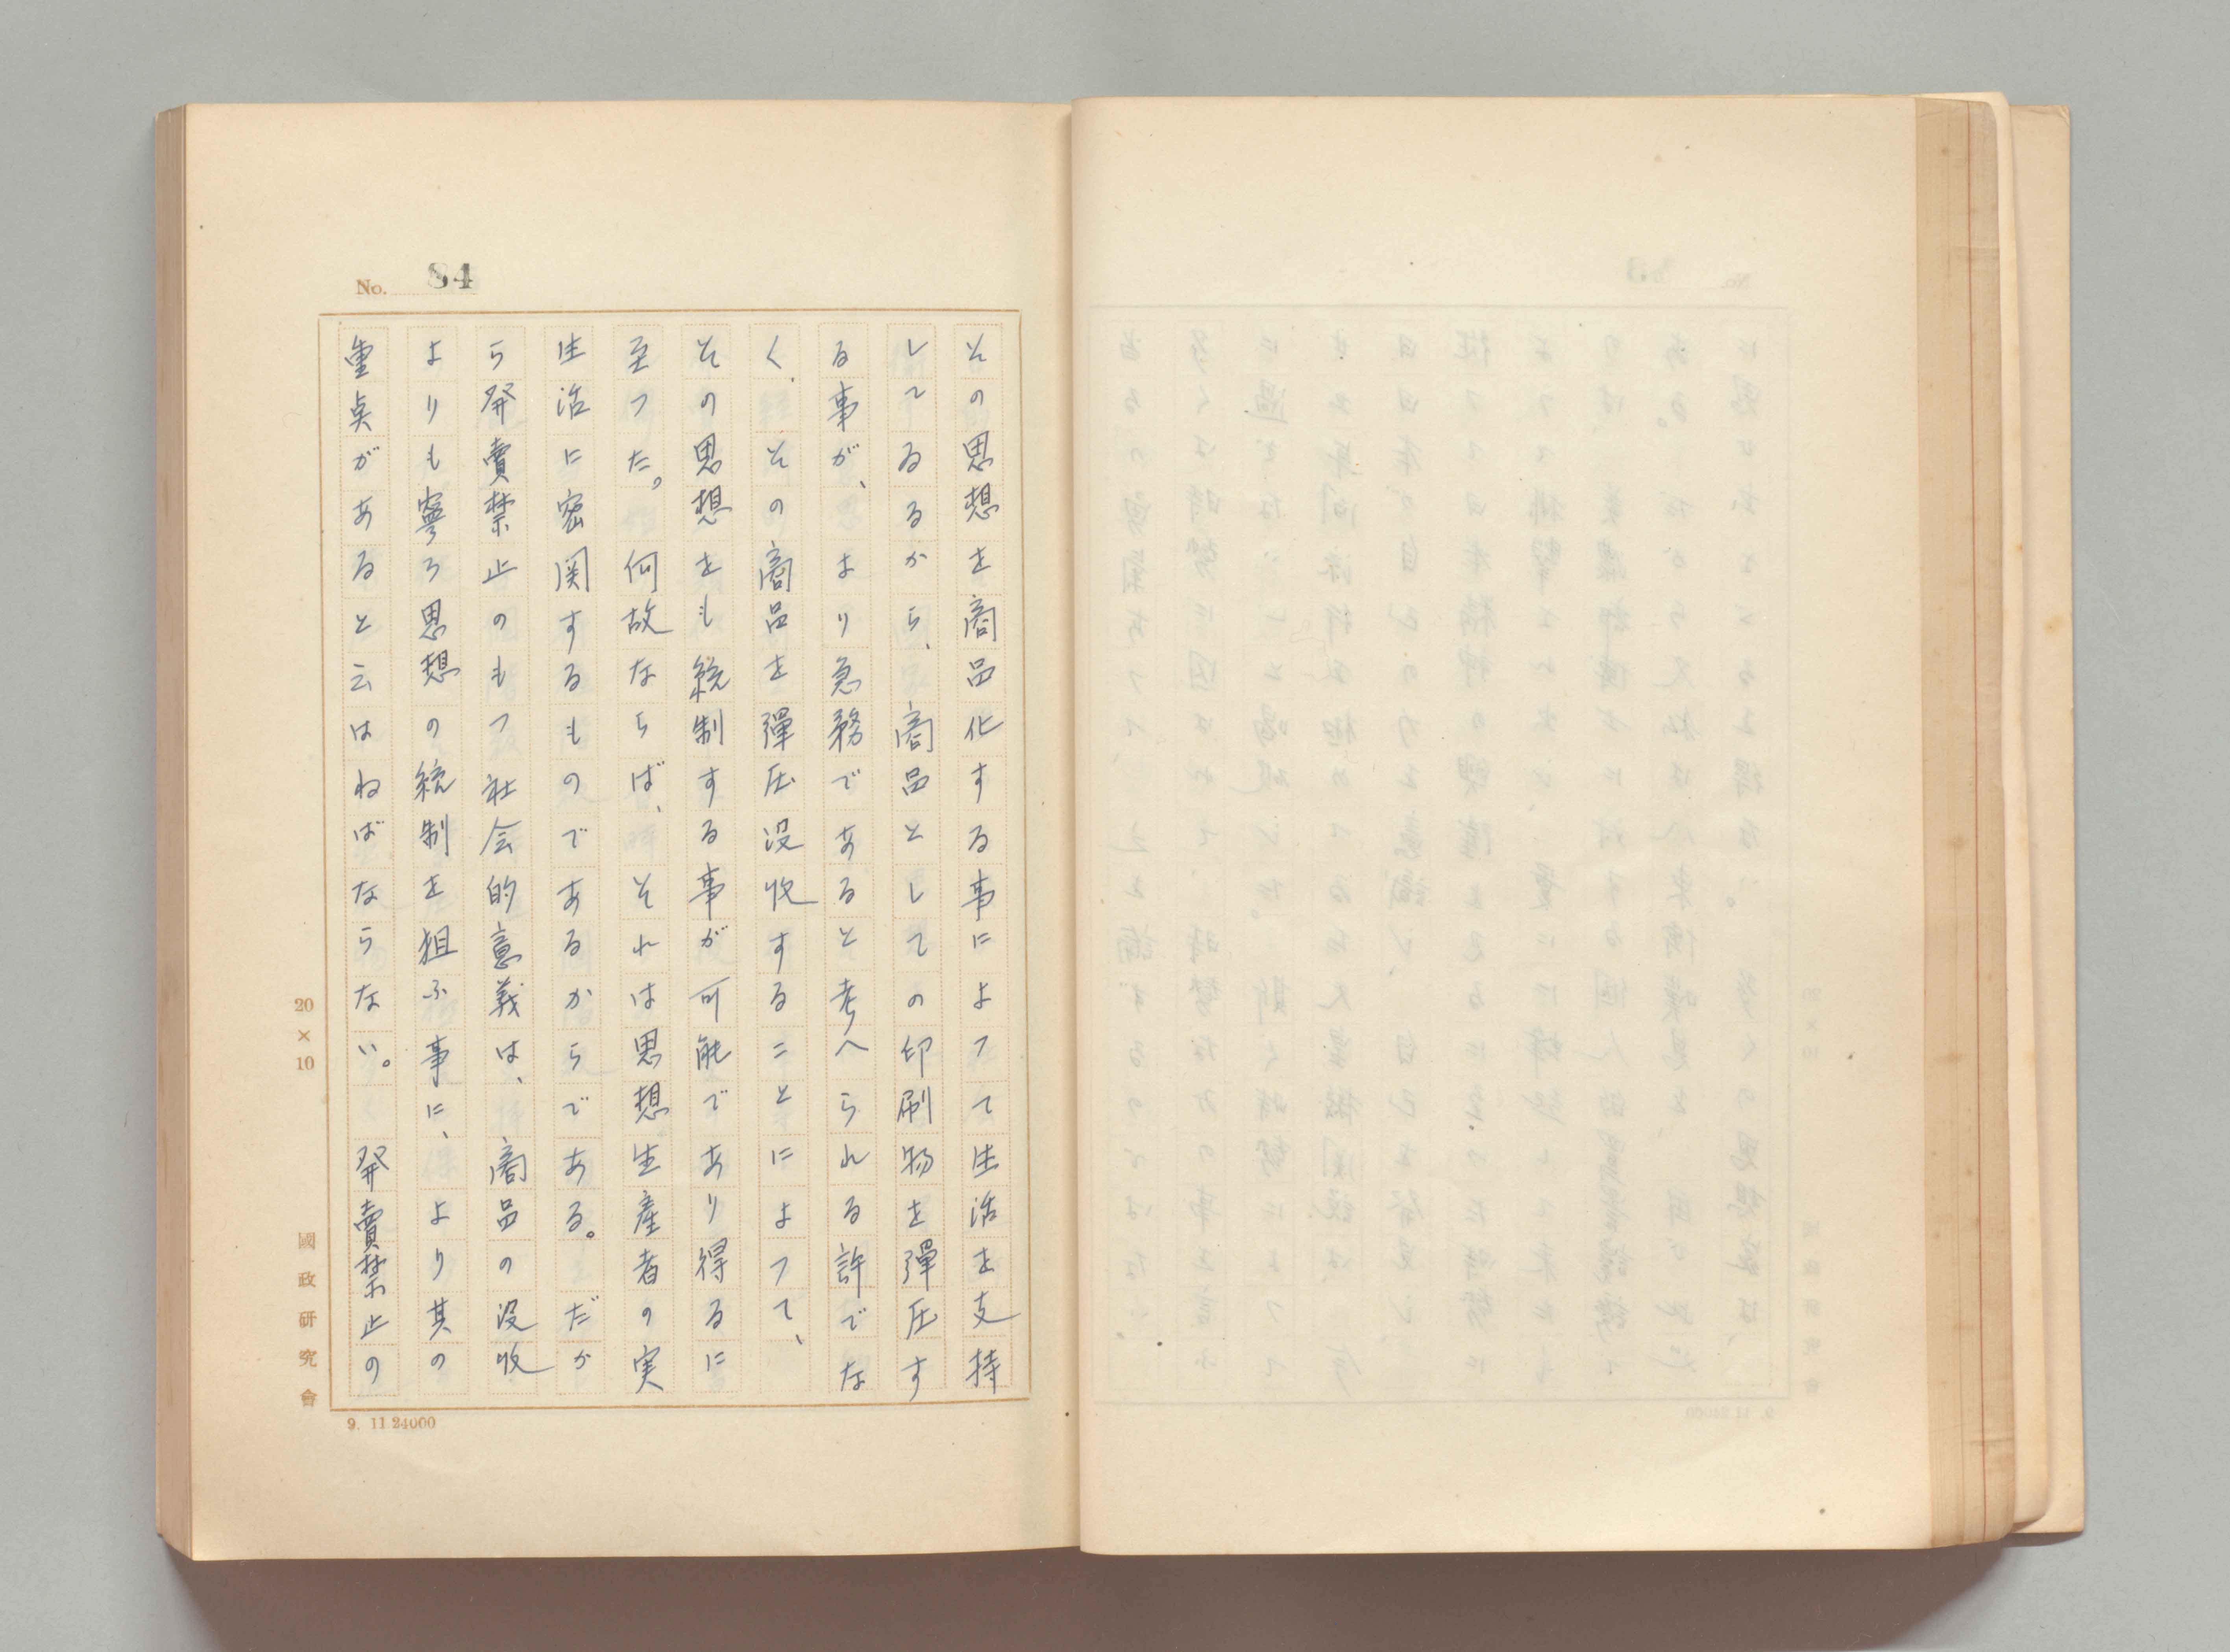 No. 84
その思想を商品化する事によつて生活を支持
してゐるから、商品としての印刷物を彈圧す
る事が、より急務であると考へられる許でな
く、その商品を彈圧没收することによつて、
その思想をも統制する事が可能であり得るに
至つた。何故ならば、それは思想生産者の実
生活に密関するものであるからである。だか
ら発賣禁止のもつ社会的意義は、商品の没收
よりも寧ろ思想の統制を狙ふ事に、より其の
重点があると云はねばならない。 発賣禁止の
20×10
國政研究會
9. 11 24000